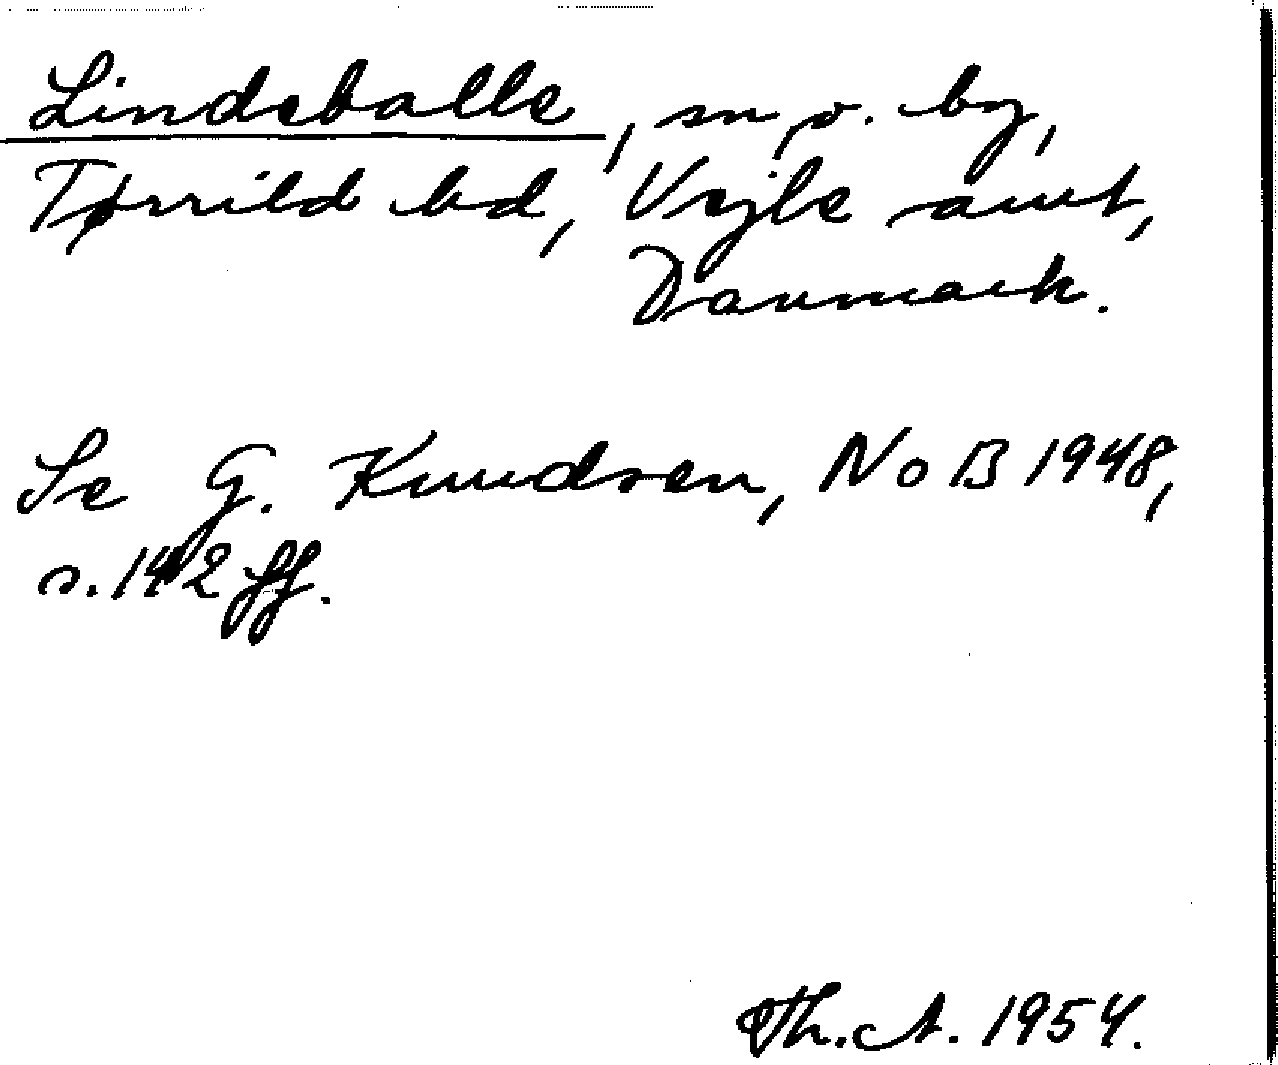 Lindeballe, sn o. by,
Tørrild hd, Vejle amt,
Danmark.
Se G. Knudsen, NoB 1948,
s. 142 ff.
Th. A. 1954.